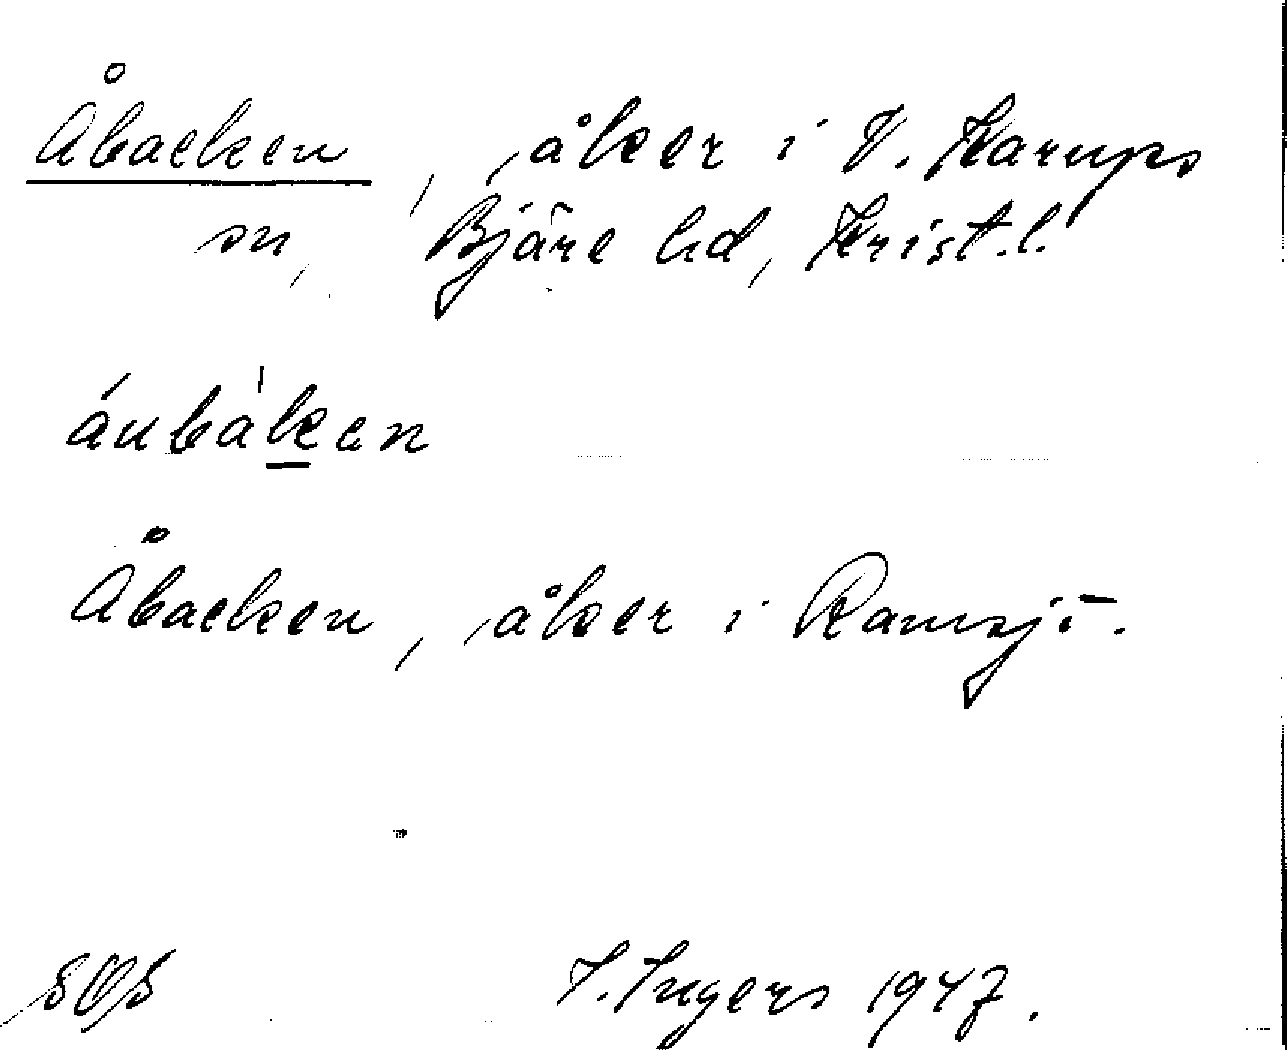 Åbacken, åker i V. Karups
sn, Bjäre hd, Krist. l.
áubàken
Åbacken, åker i Ramsjö.
I. Ingers 1947.